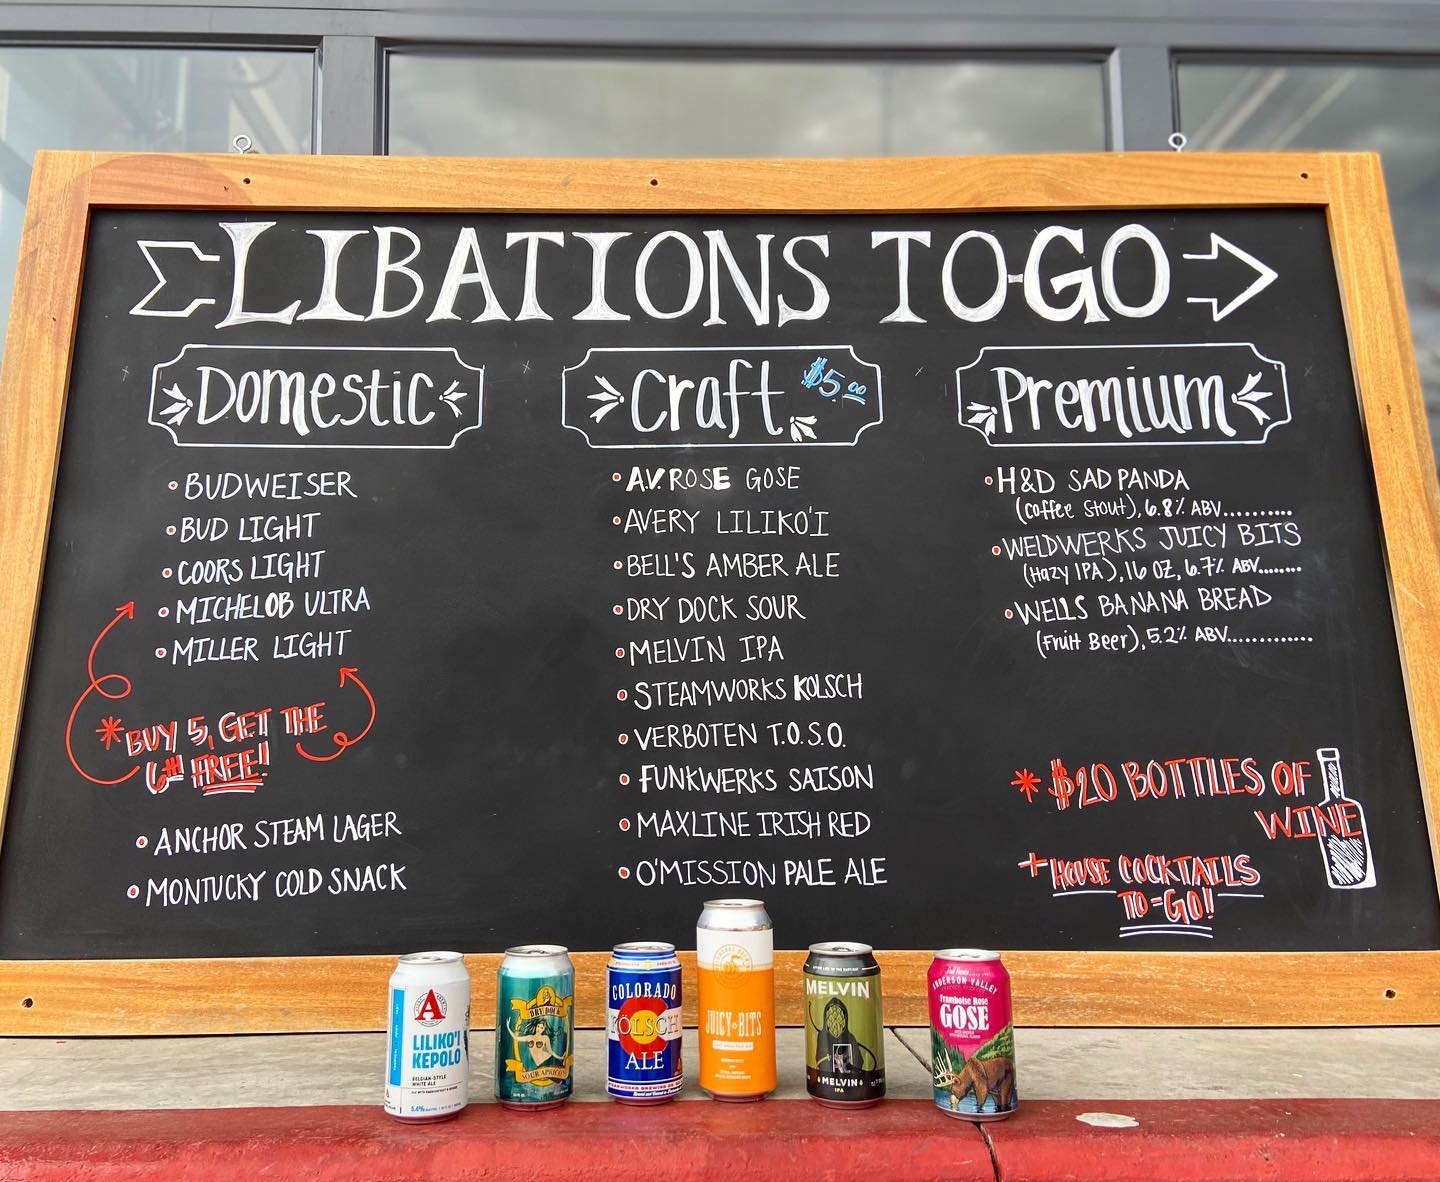 LIBATIONS TO-GO
Domestic
• BUDWEISER
• BUD LIGHT
• COORS LIGHT
• MICHELOB ULTRA
• MILLER LIGHT
*BUY 5, GET THE
6TH FREE!
• ANCHOR STEAM LAGER
• MONTUCKY COLD SNACK
Craft $5.00
• A.V. ROSE GOSE
• AVERY LILIKO'I
• BELL'S AMBER ALE
• DRY DOCK SOUR
• MELVIN IPA
• STEAMWORKS KOLSCH
• VERBOTEN T.O.S.O.
• FUNKWERKS SAISON
• MAXLINE IRISH RED
• O'MISSION PALE ALE
Premium
• H&D SAD PANDA
(coffee stout), 6.8% ABV..........
• WELDWERKS JUICY BITS
(Hazy IPA), 16 OZ, 6.7% ABV........
• WELLS BANANA BREAD
(Fruit Beer), 5.2% ABV............
* $20 BOTTLES OF
WINE
+ HOUSE COCKTAILS
TO-GO!!
A
LILIKO'I
KEPOLO
BELGIAN-STYLE
WHITE ALE
5.4%
DRY DOCK
SOUR APRICOT
COLORADO
KÖLSCH
ALE
JUICY BITS
MELVIN
MELVIN
IPA
ANDERSON VALLEY
Framboise Rose
GOSE